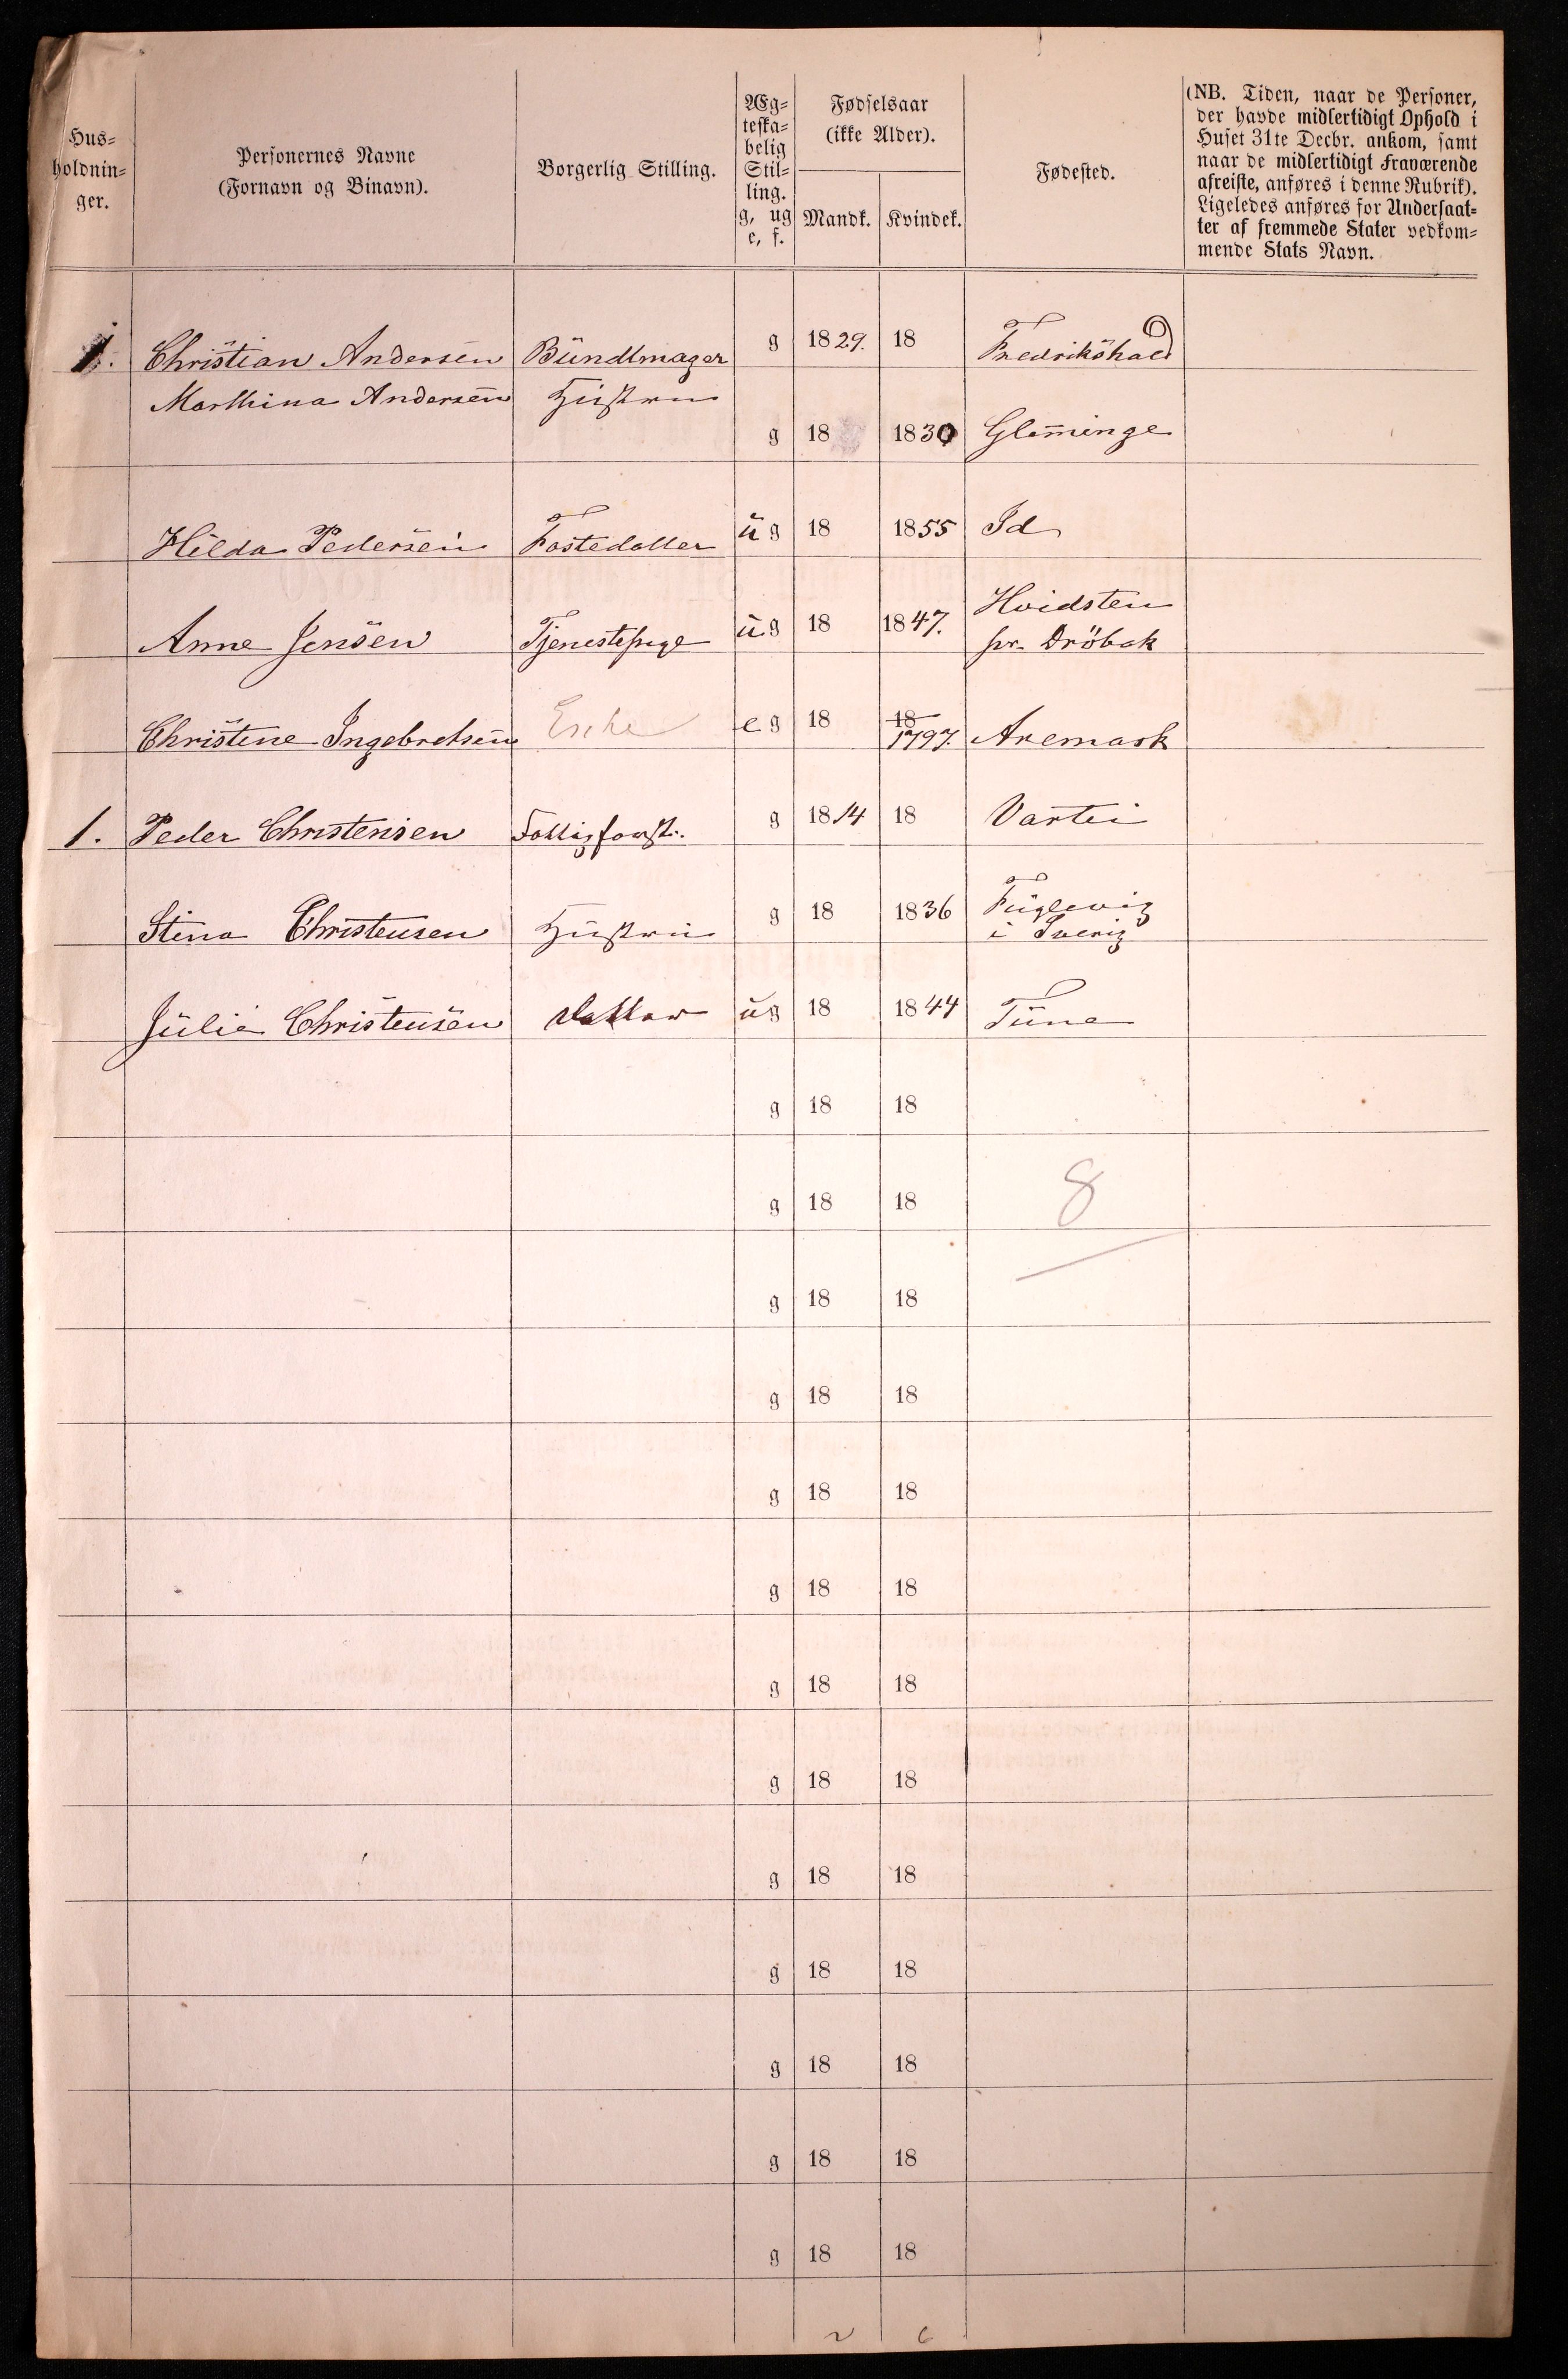 Hus-
holdnin-
ger.
Personernes Navne
(Fornavn og Binavn).
Borgerlig Stilling.
Æg-
teska-
belig
Stil-
ling.
g, ug
e, f.
Fødselsaar
(ikke Alder).
Mandk. Kvindek.
Fødested.
(NB. Tiden, naar de Personer,
der havde midlertidigt Ophold i
Huset 31te Decbr. ankom, samt
naar de midlertidigt Fraværende
afreiste, anføres i denne Rubrik).
Ligeledes anføres for Undersaat-
ter af fremmede Stater vedkom-
mende Stats Navn.
1. Christian Andersen Bündtmager g 1829. 18 Fredrikshald
Marthina Andersen Hustru g 18 1830 Glem̄inge
Hilda Pedersen Fostedatter ug 18 1855 Id
Anne Jensen Tjenestepige ug 18 1847. Hvidsten
pr. Dröbak
Christine Ingebretsen Enke e g 18 18
1797. Aremark
1. Peder Christensen Fattigforst. g 1814 18 Vartei
Stina Christensen Hustru g 18 1836 Fuglevig
i Sverig
Julie Christensen datter ug 18 1844 Tune
g 18 18
g 18 18 8
g 18 18
g 18 18
g 18 18
g 18 18
g 18 18
g 18 18
g 18 18
g 18 18
g 18 18
g 18 18
g 18 18
2 6